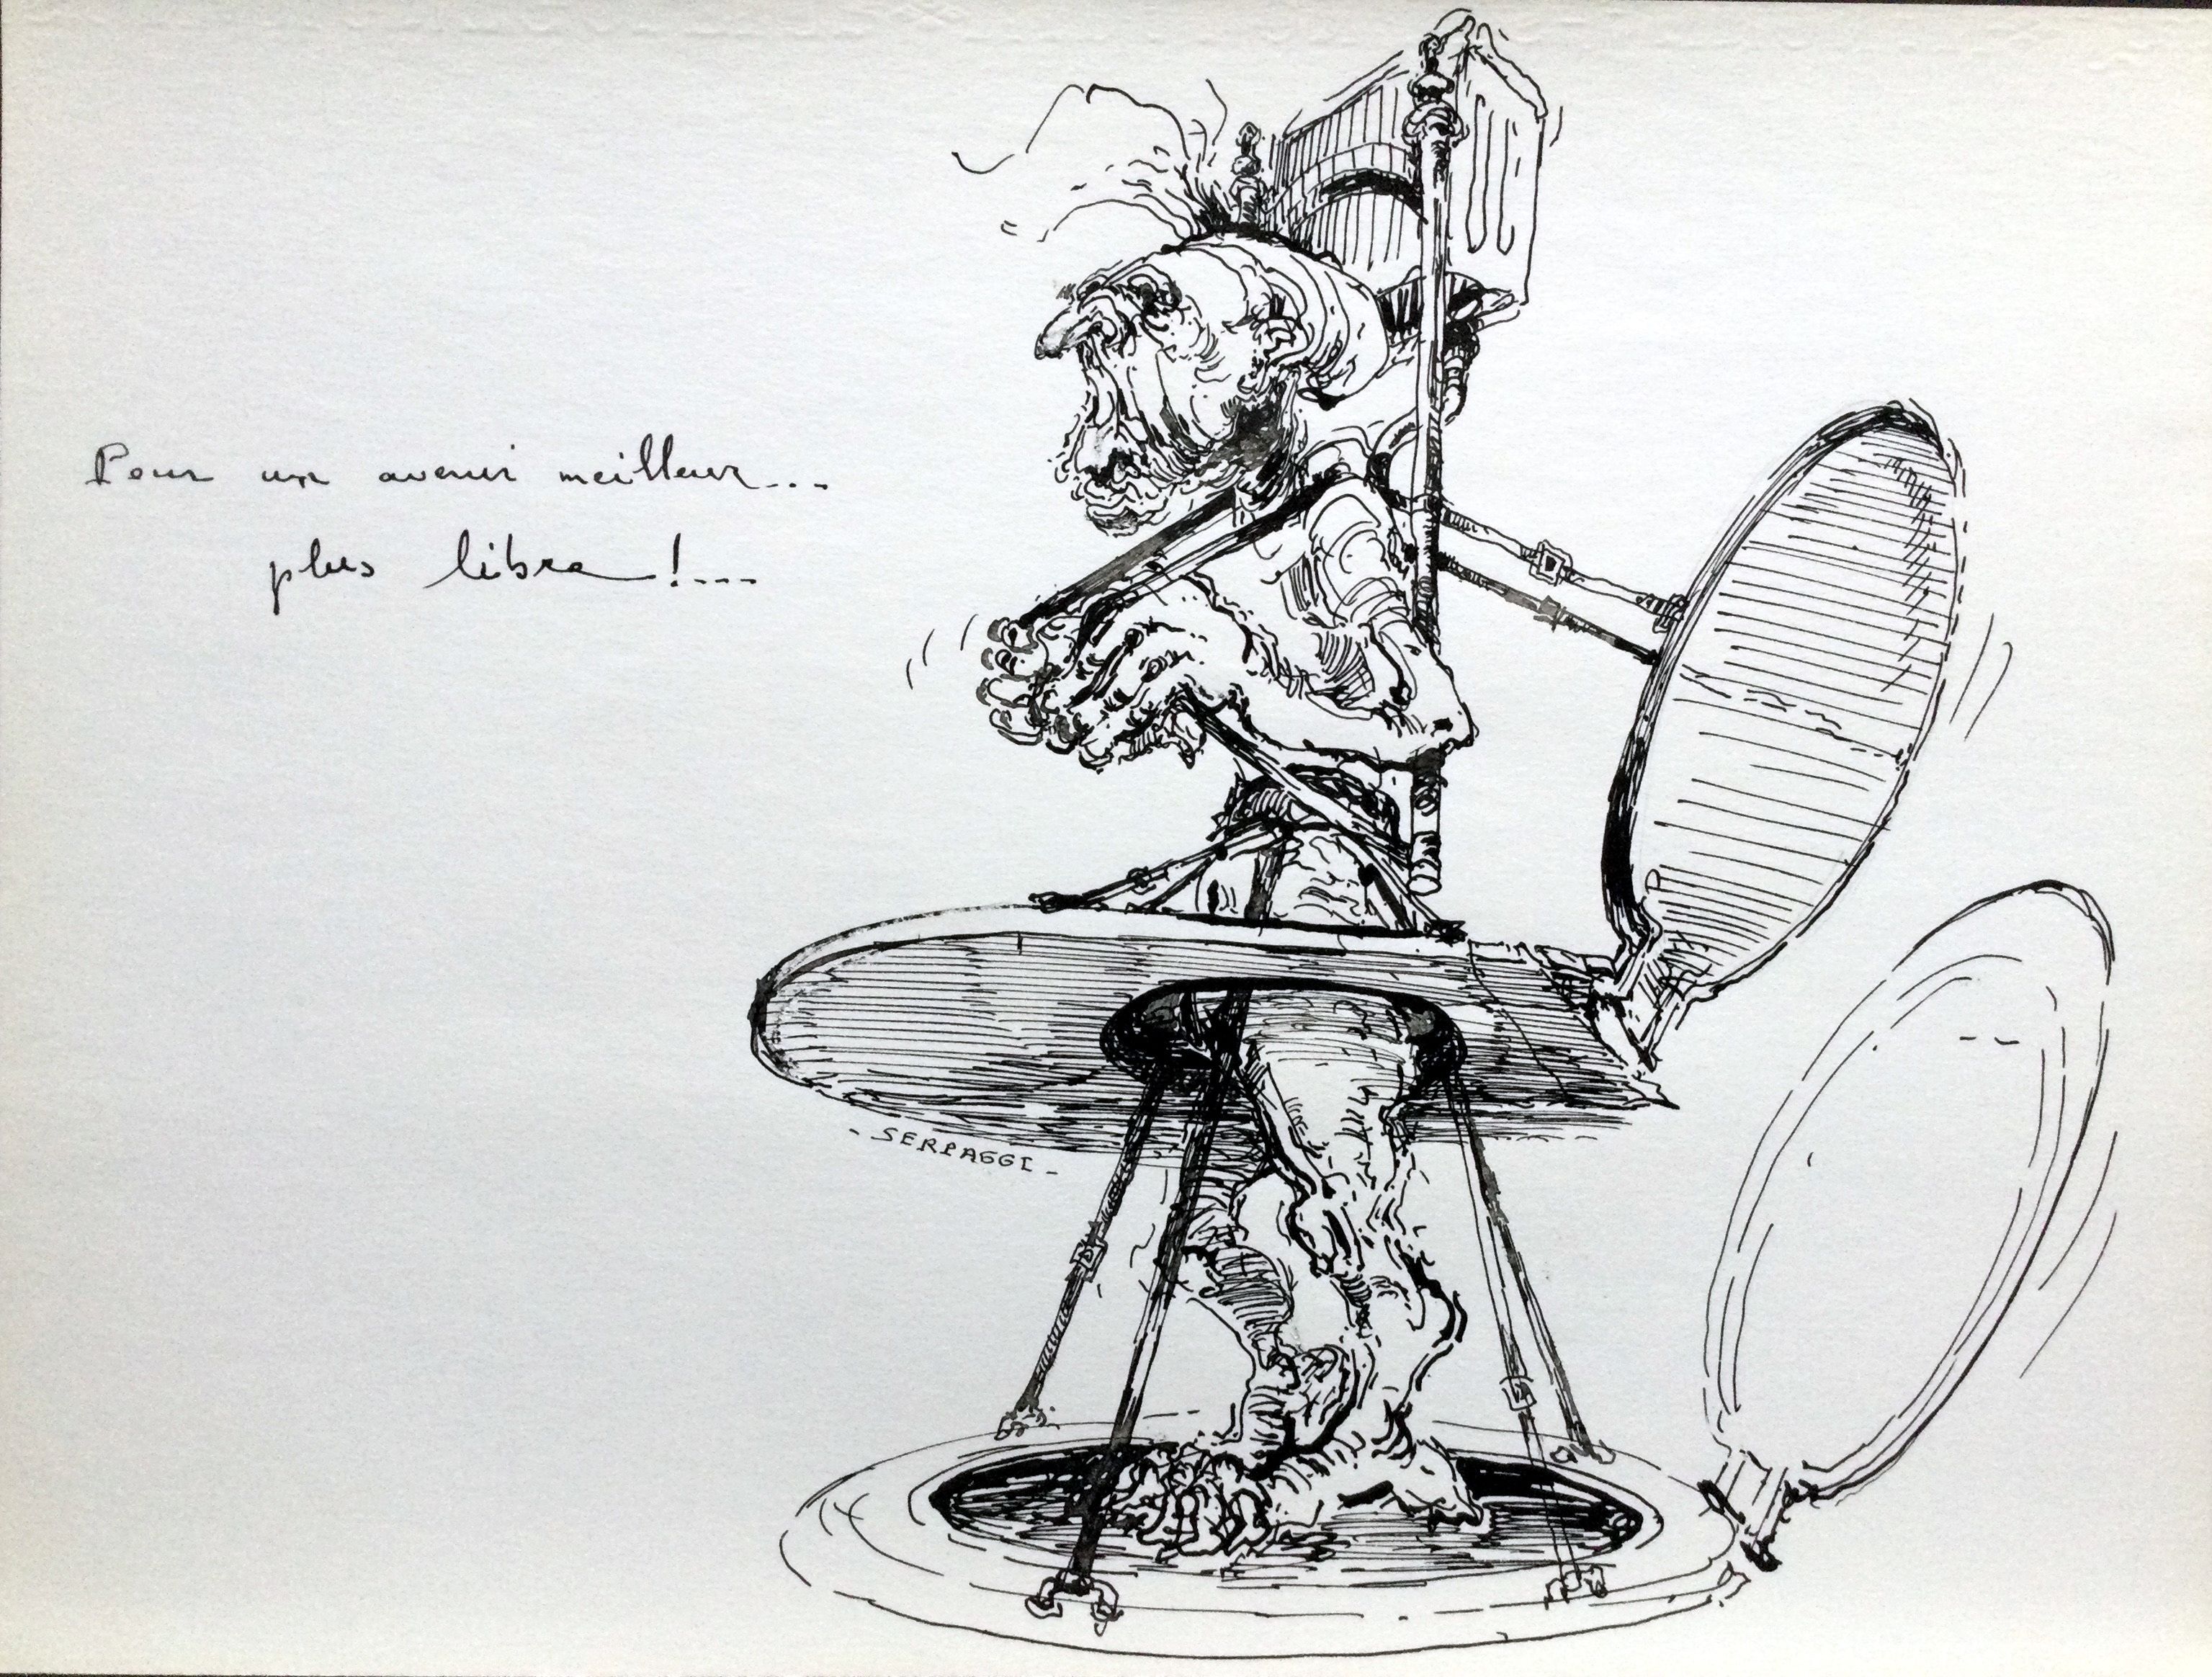 Pour un avenir meilleur...
plus libre !...
- SERPAGGI -